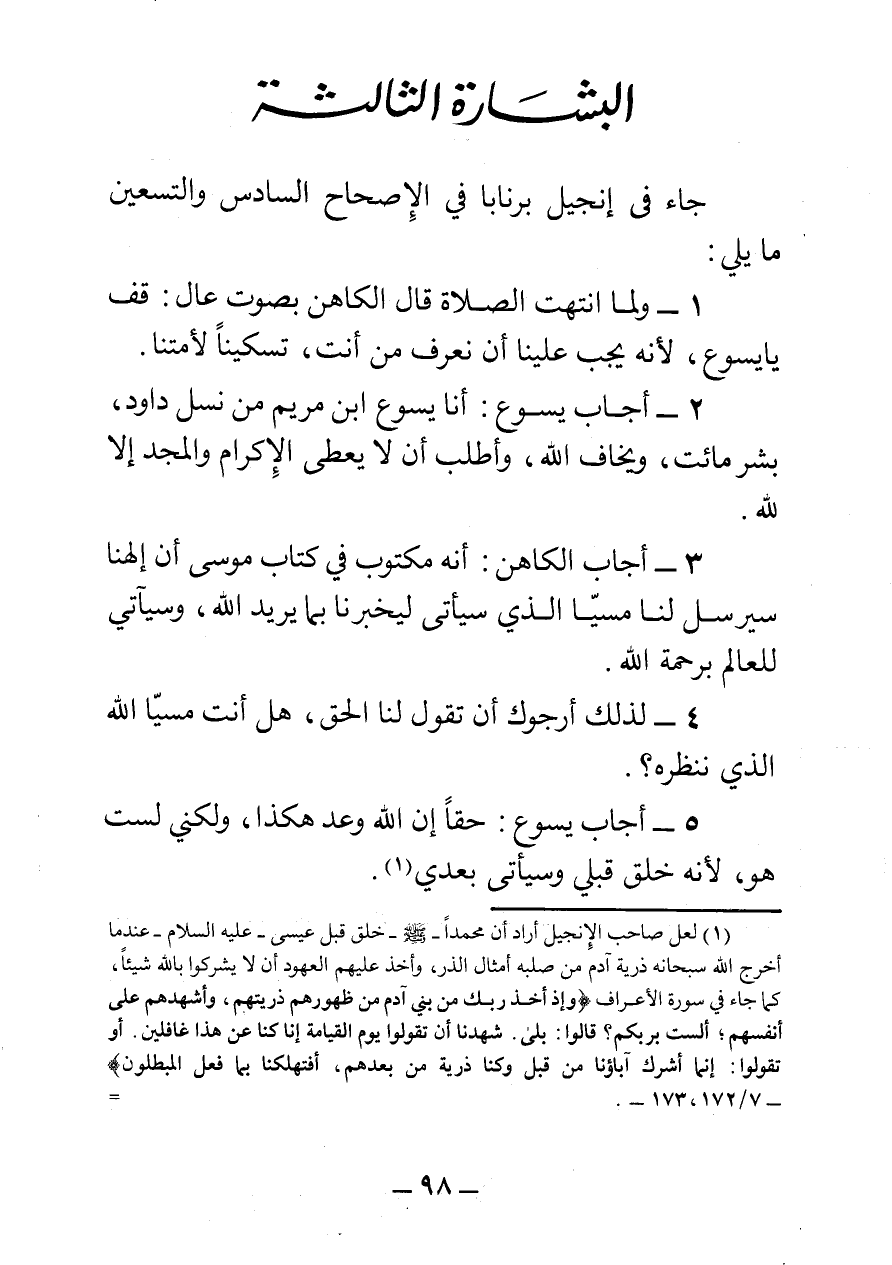 البشارة الثالثة
جاء فى إنجيل برنابا في الإصحاح السادس والتسعين
ما يلي:
١ ــ ولما انتهت الصلاة قال الكاهن بصوت عال: قف
يايسوع، لأنه يجب علينا أن نعرف من أنت، تسكيناً لأمتنا.
٢ ــ أجاب يسوع: أنا يسوع ابن مريم من نسل داود،
بشر مائت، ويخاف الله، وأطلب أن لا يعطى الإكرام والمجد إلا
لله.
٣ ــ أجاب الكاهن: أنه مكتوب في كتاب موسى أن إلهنا
سيرسل لنا مسيّا الذي سيأتى ليخبرنا بما يريد الله، وسيآتي
للعالم برحمة الله.
٤ ــ لذلك أرجوك أن تقول لنا الحق، هل أنت مسيّا الله
الذي ننظره؟.
٥ ــ أجاب يسوع: حقاً إن الله وعد هكذا، ولكني لست
هو، لأنه خلق قبلي وسيأتى بعدي(١).
(١) لعل صاحب الإنجيل أراد أن محمداً ـ ﷺ ـ خلق قبل عيسى ـ عليه السلام ـ عندما
أخرج الله سبحانه ذرية آدم من صلبه أمثال الذر، وأخذ عليهم العهود أن لا يشركوا بالله شيئاً،
كما جاء في سورة الأعراف ﴿وإذ أخذ ربك من بني آدم من ظهورهم ذريتهم، وأشهدهم على
أنفسهم؛ ألست بربكم؟ قالوا: بلىٰ. شهدنا أن تقولوا يوم القيامة إنا كنا عن هذا غافلين. أو
تقولوا: إنما أشرك آباؤنا من قبل وكنا ذرية من بعدهم، أفتهلكنا بما فعل المبطلون﴾
ـ ١٧٢/٧، ١٧٣ ـ. =
ـ ٩٨ ـ